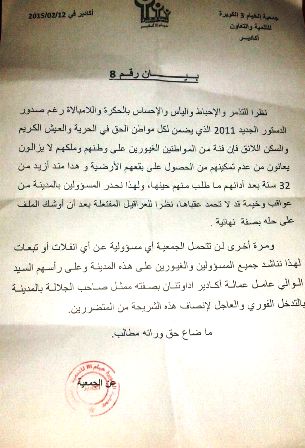 جمعية الخيام 3 الكويرة
للتنمية والتعاون
أكادير
أكادير في 2015/02/12
بيان رقم 8
نظرا للتذمر والإحباط واليأس والإحساس بالحكرة واللامبالاة رغم صدور
الدستور الجديد 2011 الذي يضمن لكل مواطن الحق في الحرية والعيش الكريم
والسكن اللائق فإن فئة من المواطنين الغيورين على وطنهم وملكهم لا يزالون
يعانون من عدم تمكينهم من الحصول على بقعهم الأرضية و هذا منذ أزيد من
32 سنة بعد أدائهم ما طلب منهم حينها، ولهذا نحذر المسؤولين بالمدينة من
عواقب وخيمة قد لا تحمد عقباها، نظرا للعراقيل المفتعلة بعد أن أوشك الملف
على حله بصفة نهائية.
ومرة أخرى لن تتحمل الجمعية أي مسؤولية عن أي انفلات أو تبعات
لهذا نناشد جميع المسؤولين والغيورين على هذه المدينة وعلى رأسهم السيد
الوالي عامل عمالة أكادير اداوتنان بصفته ممثل صاحب الجلالة بالمدينة
بالتدخل الفوري والعاجل لإنصاف هذه الشريحة من المتضررين.
ما ضاع حق وراءه مطالب.
عن الجمعية